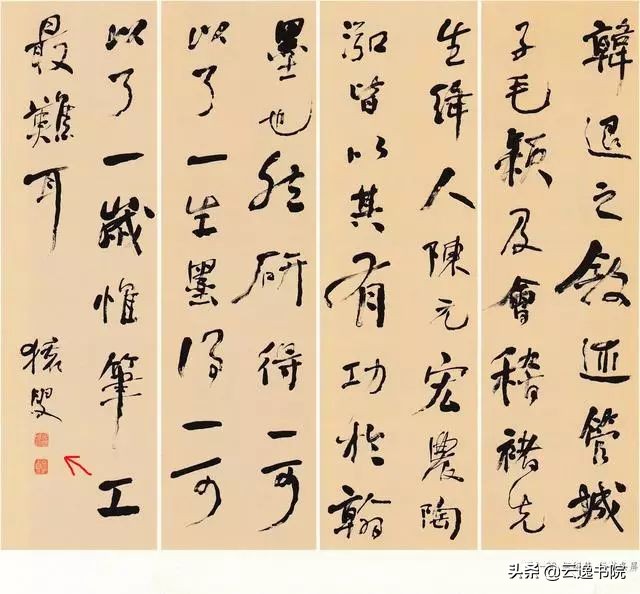 韓退之敘述管城
子毛穎及會稽褚先
生絳人陳元宏農陶
泓皆以其有功於翰
墨也然研得一可
以了一生墨得一可
以了一歲惟筆工
最難耳
猨叟
头条 @云逸书院